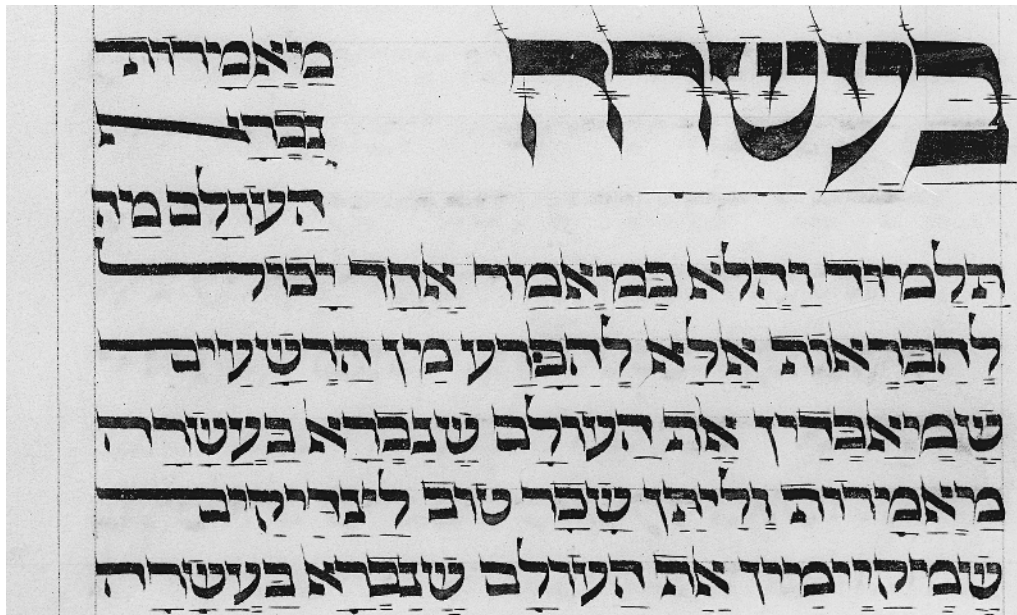 בעשרה
מיאמרות
נברי ת
העולם מה
תלמוד והלא במיאמר אחד יכול
להבראות אלא להפרע מן הרשעים
שמיאבדין את העולם שנברא בעשרה
מיאמרות וליתן שכר טוב לצדיקים
שמיקיימין את העולם שנברא בעשרה